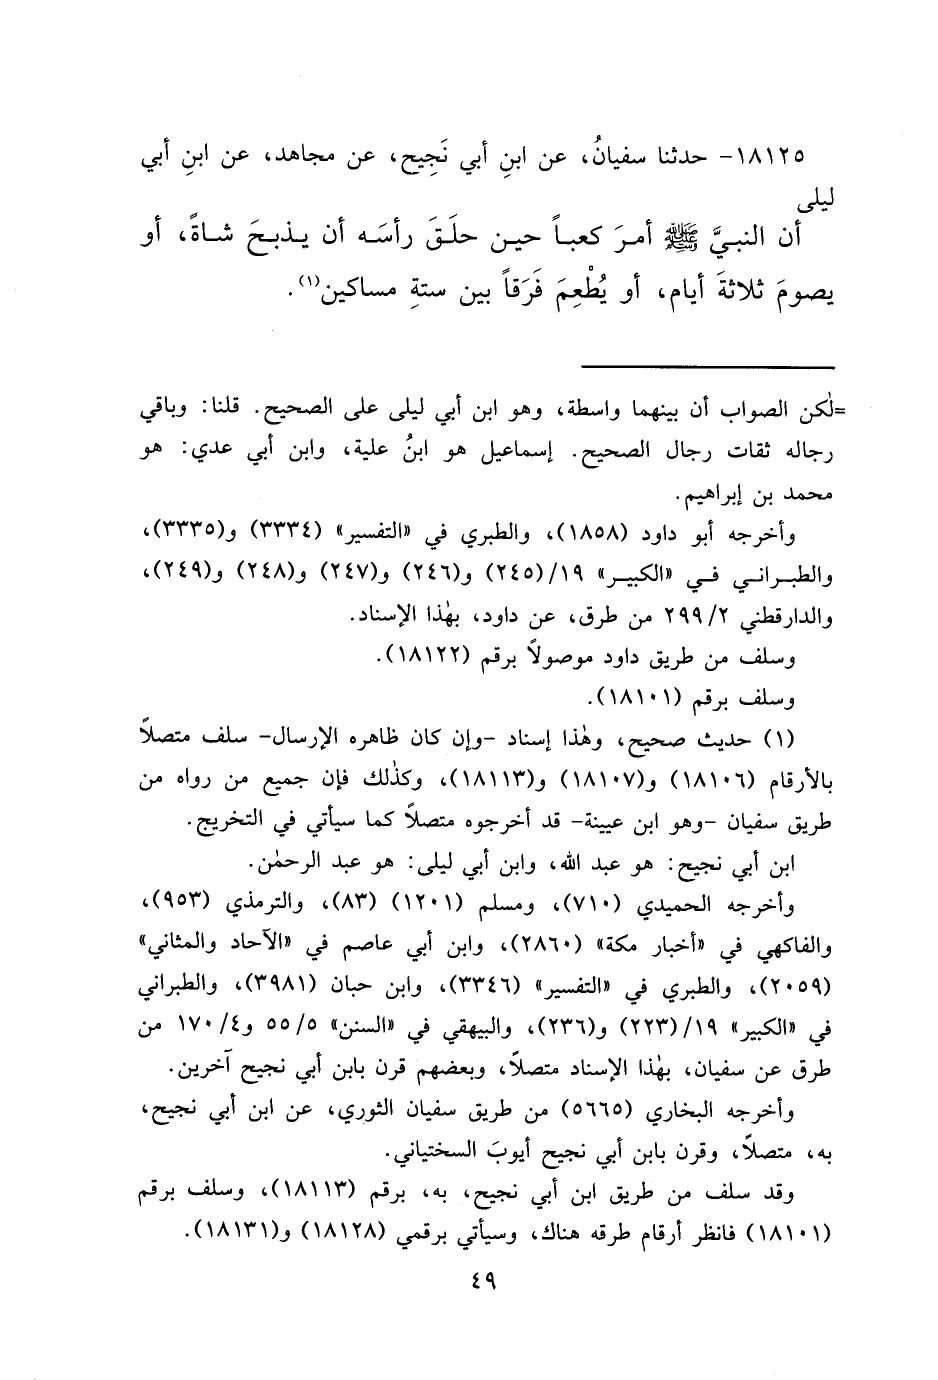 ١٨١٢٥- حدثنا سفيانُ، عن ابنِ أبي نَجِيح، عن مجاهد، عن ابنِ أبي
ليلى
أن النبيَّ ﷺ أمرَ كعباً حين حلَقَ رأسَه أن يذبحَ شاةً، أو
يصومَ ثلاثةَ أيام، أو يُطْعِمَ فَرَقاً بين ستةِ مساكين(١).
=لٰكن الصواب أن بينهما واسطة، وهو ابن أبي ليلى على الصحيح. قلنا: وباقي
رجاله ثقات رجال الصحيح. إسماعيل هو ابنُ علية، وابن أبي عدي: هو
محمد بن إبراهيم.
وأخرجه أبو داود (١٨٥٨)، والطبري في «التفسير» (٣٣٣٤) و(٣٣٣٥)،
والطبراني في «الكبير» ١٩/(٢٤٥) و(٢٤٦) و(٢٤٧) و(٢٤٨) و(٢٤٩)،
والدارقطني ٢/٢٩٩ من طرق، عن داود، بهٰذا الإسناد.
وسلف من طريق داود موصولاً برقم (١٨١٢٢).
وسلف برقم (١٨١٠١).
(١) حديث صحيح، وهٰذا إسناد -وإن كان ظاهره الإرسال- سلف متصلاً
بالأرقام (١٨١٠٦) و(١٨١٠٧) و(١٨١١٣)، وكذٰلك فإن جميع من رواه من
طريق سفيان -وهو ابن عيينة- قد أخرجوه متصلاً كما سيأتي في التخريج.
ابن أبي نجيح: هو عبد الله، وابن أبي ليلى: هو عبد الرحمٰن.
وأخرجه الحميدي (٧١٠)، ومسلم (١٢٠١) (٨٣)، والترمذي (٩٥٣)،
والفاكهي في «أخبار مكة» (٢٨٦٠)، وابن أبي عاصم في «الآحاد والمثاني»
(٢٠٥٩)، والطبري في «التفسير» (٣٣٤٦)، وابن حبان (٣٩٨١)، والطبراني
في «الكبير» ١٩/(٢٢٣) و(٢٣٦)، والبيهقي في «السنن» ٥/٥٥ و٤/١٧٠ من
طرق عن سفيان، بهٰذا الإسناد متصلاً، وبعضهم قرن بابن أبي نجيح آخرين.
وأخرجه البخاري (٥٦٦٥) من طريق سفيان الثوري، عن ابن أبي نجيح،
به، متصلاً، وقرن بابن أبي نجيح أيوبَ السختياني.
وقد سلف من طريق ابن أبي نجيح، به، برقم (١٨١١٣)، وسلف برقم
(١٨١٠١) فانظر أرقام طرقه هناك، وسيأتي برقمي (١٨١٢٨) و(١٨١٣١).
٤٩